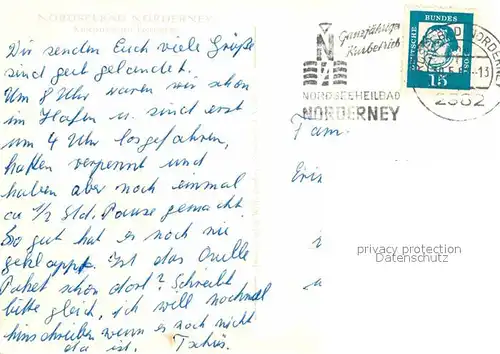 NORDSEEBAD NORDERNEY
Wir senden Euch viele Grüße
sind gut gelandet.
Um 8 Uhr waren wir schon
im Hafen u. sind erst
um 4 Uhr losgefahren,
hatten verpennt und
haben aber noch einmal
ca 1/2 Std. Pause gemacht.
So gut hat es noch nie
geklappt. Ist das Quelle
Paket schon dort? Schreibt
bitte gleich, ich will nochmal
hinschreiben wenn es noch nicht
da ist. Tschüs.
Ganzjähriger
Kurbetrieb
N
NORDSEEHEILBAD
NORDERNEY
DEUTSCHE BUNDESPOST
15
NORDERNEY
-13
2982
Fam.
privacy protection
Datenschutz